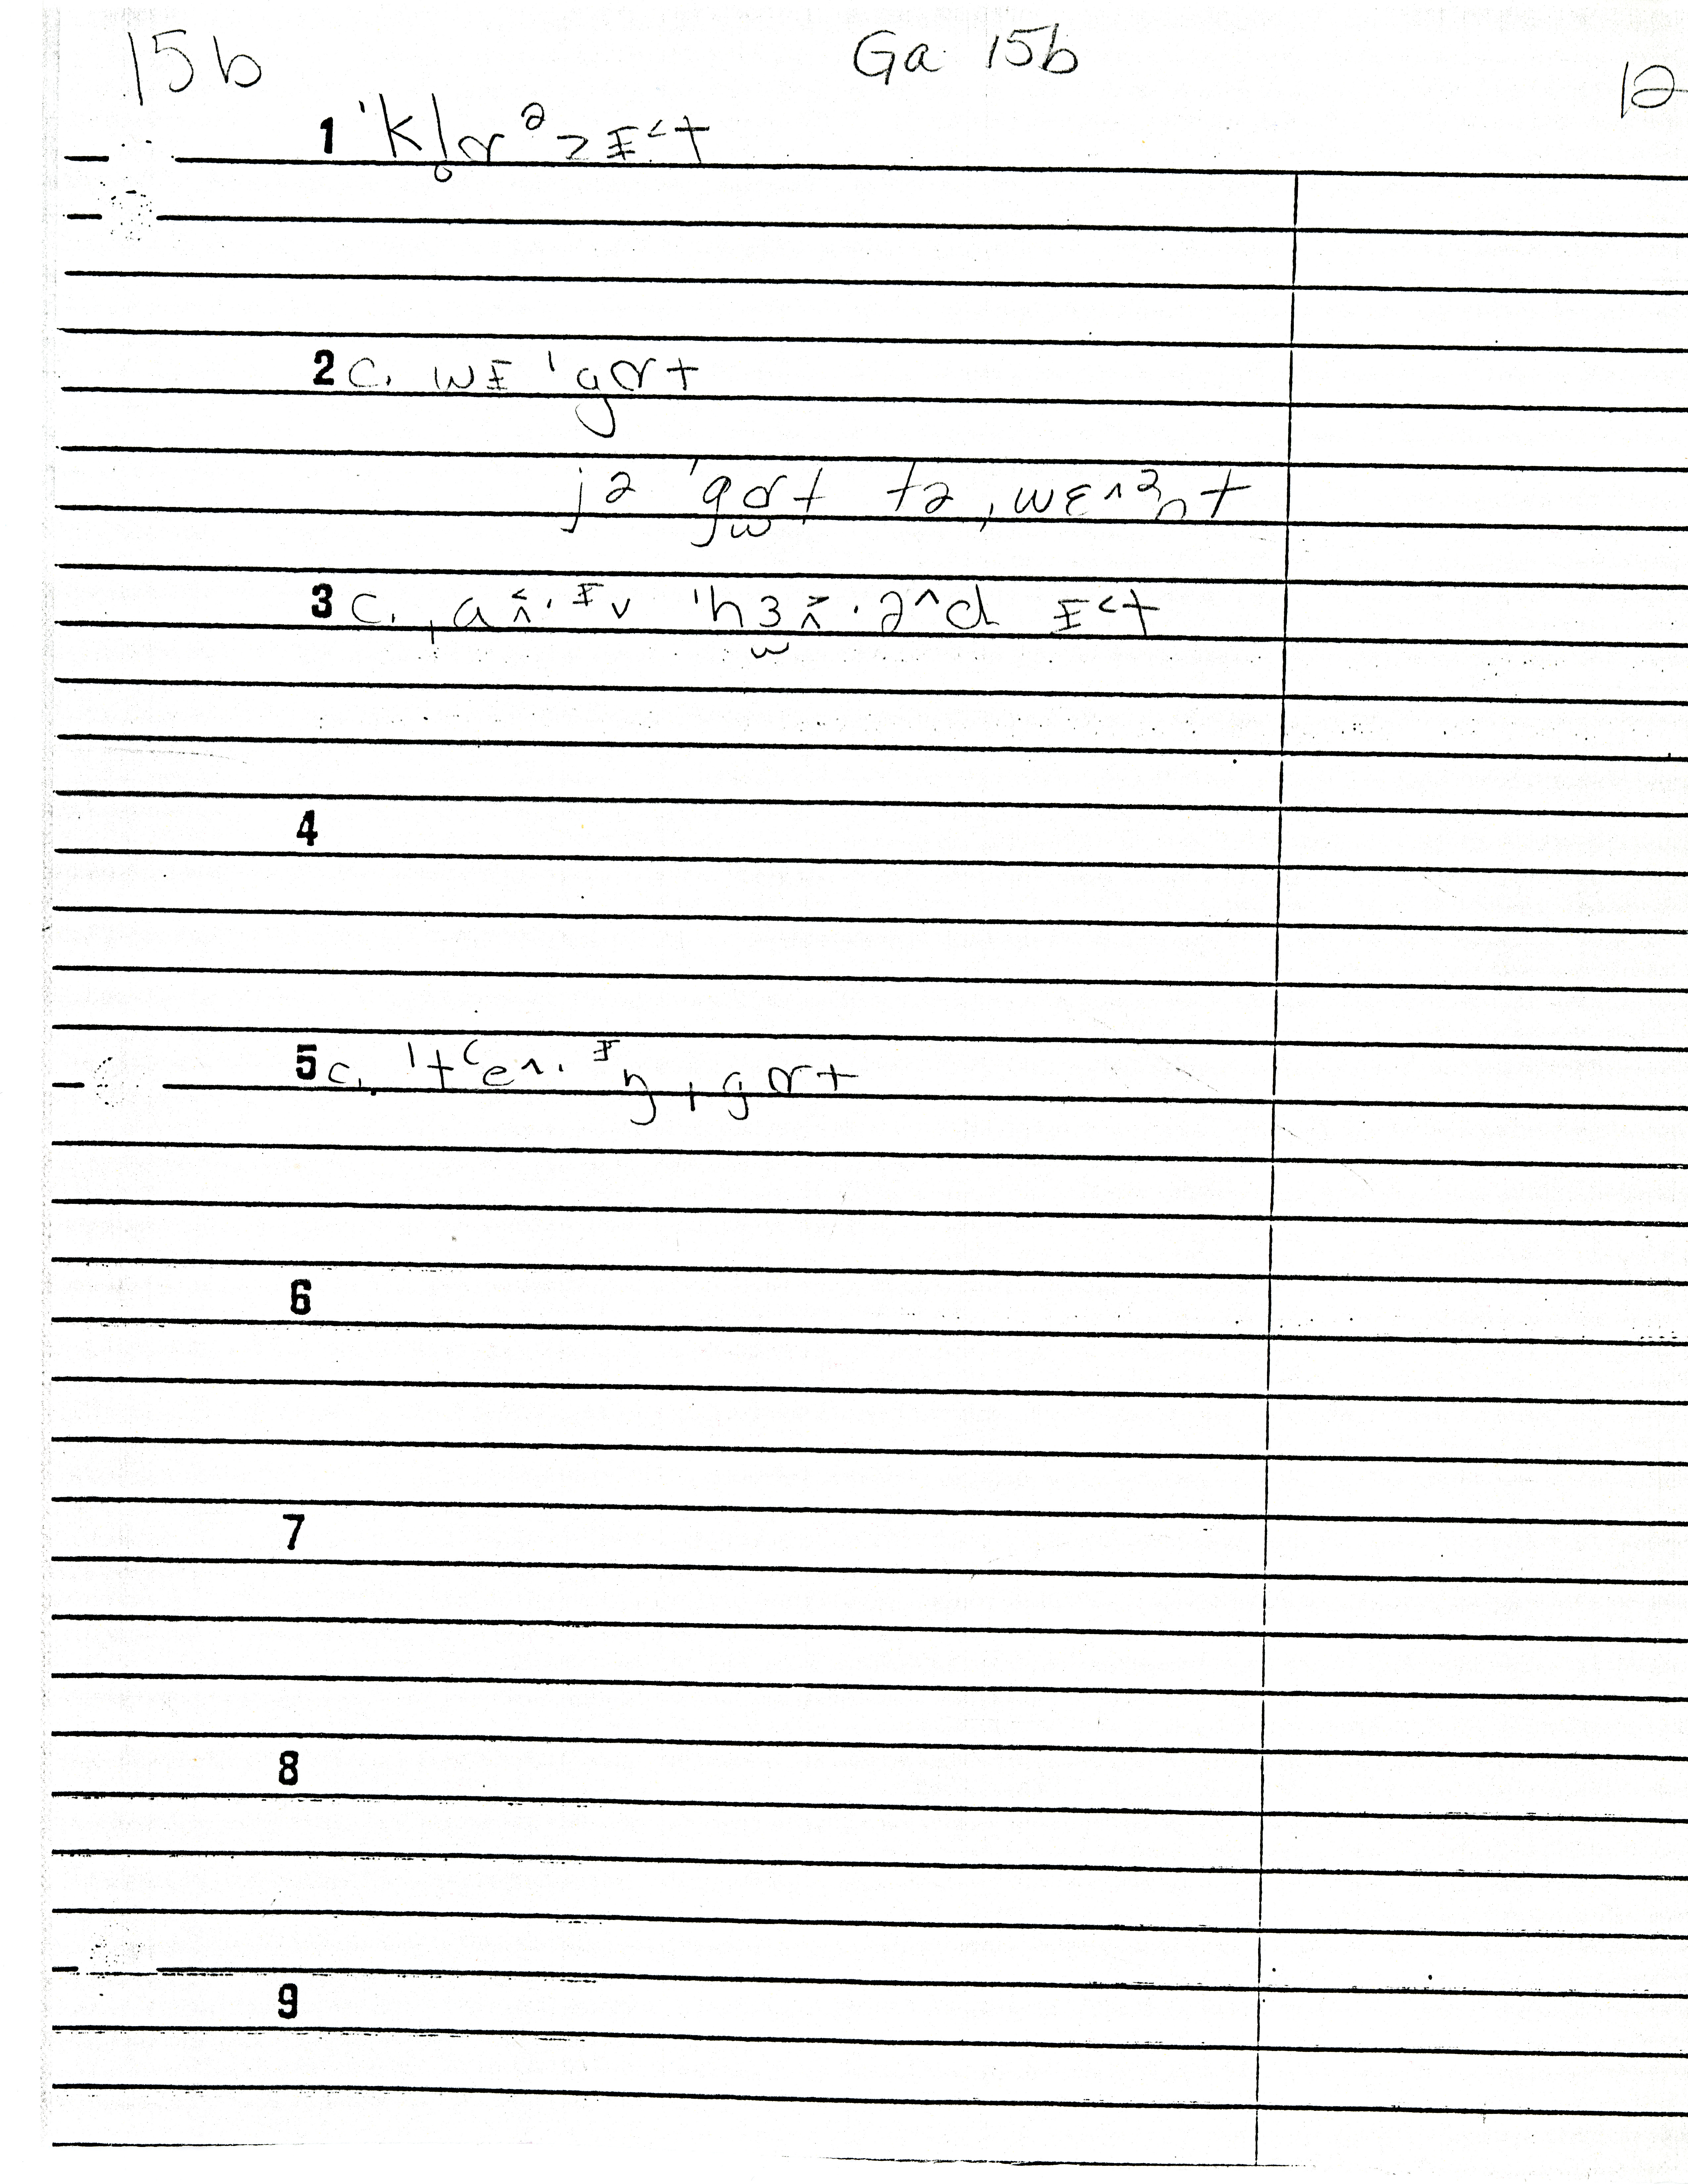 15b Ga 15b 12
1 ˈkl̥ɑᵊ>ɪ˂t
2 c. wɪ ˈgɑt
jə ˈgɑ̫t tə ˌwɛ˄ᵊnt
3 c. ˌaɪ̯·ᶦv ˈhɜ̫·ə˄d ɪ˂t
4
5 c. ˈtʻe˄·ᶦŋ ˌgɑt
6
7
8
9